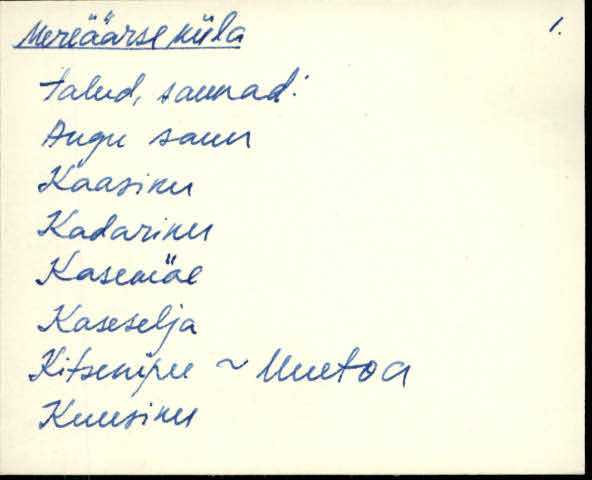 1.
Mereäärse küla
talud, saunad:
Augu saun
Kaasiku
Kadariku
Kasemäe
Kaseselja
Kitsenipu ~ Uuetoa
Kuusiku